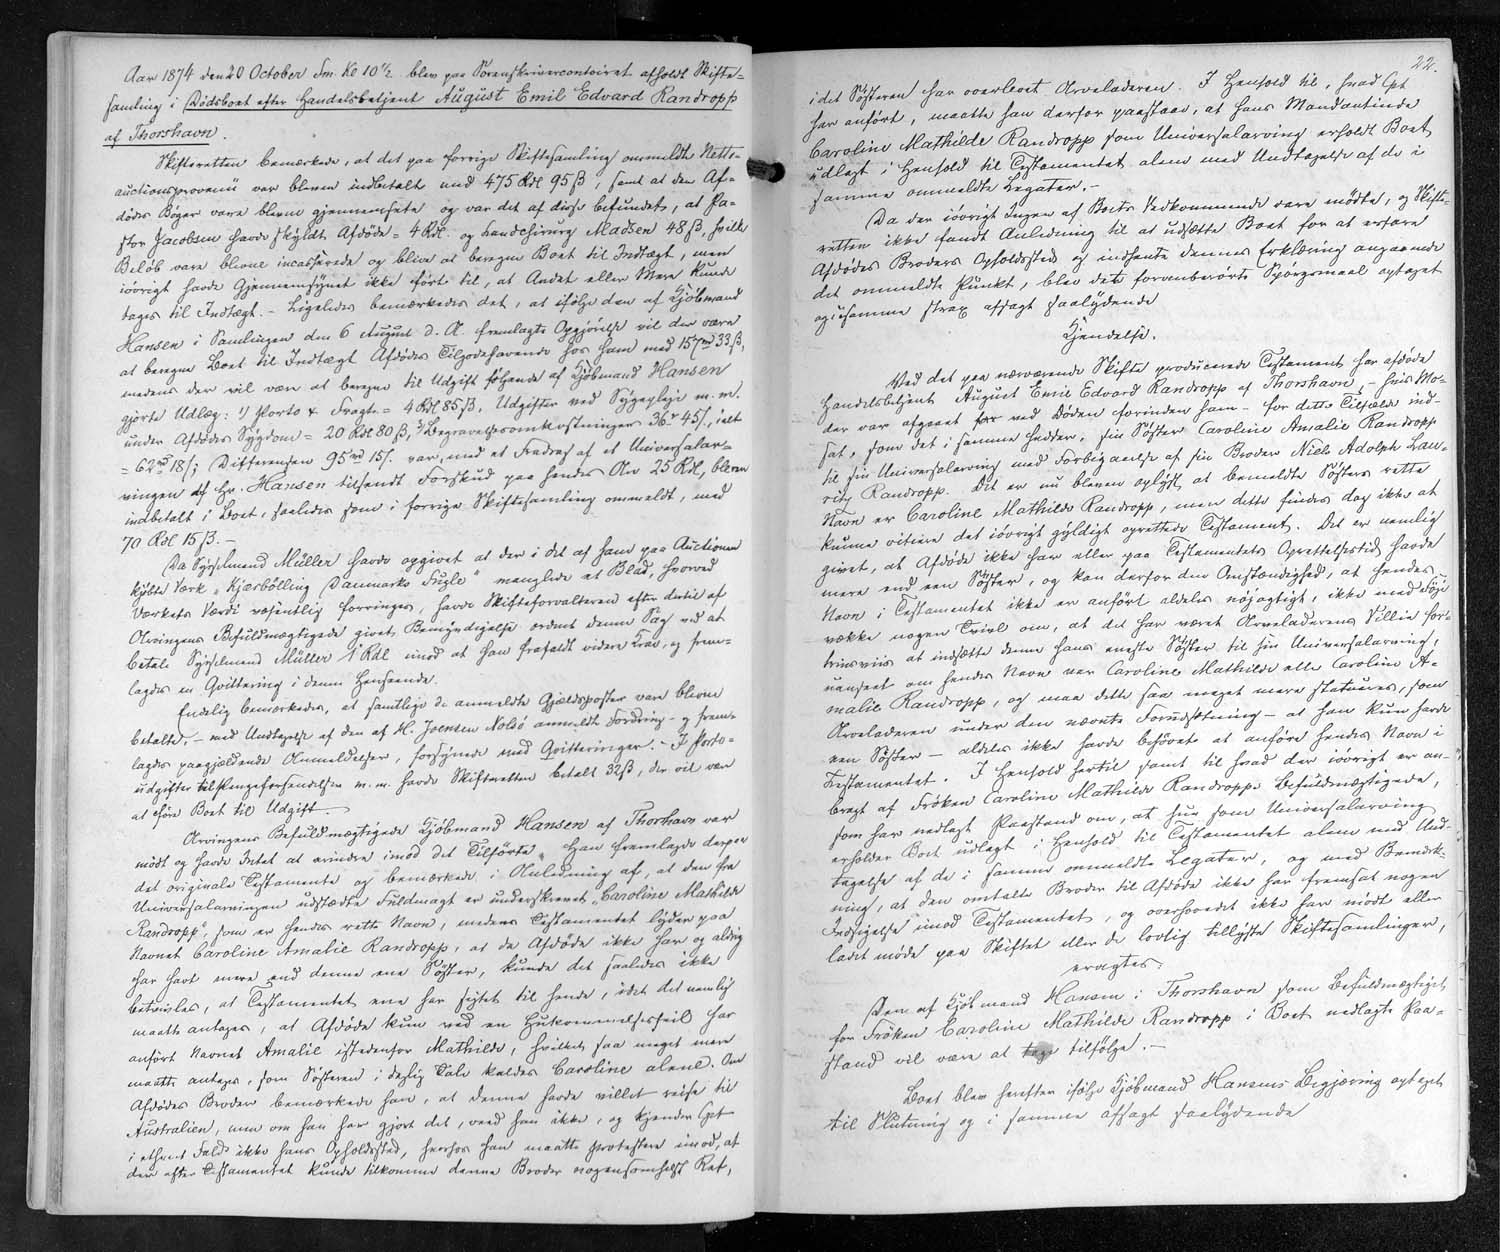 Aar 1874 den 20 October Fm. Kl 10½ blev paa Sorenskrivercontoiret afholdt Skifte-
samling i Dødsboet efter Handelsbetjent August Emil Edvard Randropp
af Thorshavn.
Skifteretten bemærkede, at det paa forrige Skiftesamling ommeldte Netto-
auctionsprovenü var bleven indbetalt med 475 Rdl 95 ß, samt at den Af-
dødes Bøger vare blevne gjennemsete og var det af disse befundet, at Pa-
stor Jacobsen havde skyldt Afdøde = 4 Rdl. og Landchirurg Madsen 48 ß, hvilke
Beløb vare blevne incasserede og blive at beregne Boet til Indtægt, men
iøvrigt havde Gjennemsynet ikke ført til, at Andet eller Mere kunde
tages til Indtægt. - Ligeledes bemærkedes det, at ifølge den af Kjøbmand
Hansen i Samlingen den 6 August d. A. fremlagte Opgjørelse vil der være
at beregne Boet til Indtægt Afdødes Tilgodehavende hos ham med 157 rd 33 ß,
medens der vil være at beregne til Udgift følgende af Kjøbmand Hansen
gjorte Udlæg: 1) Porto & Fragt = 4 Rdl 85 ß, Udgifter ved Sygepleje m. m.
under Afdødes Sygdom = 20 Rdl 80 ß, 3) Begravelsesomkostninger 36 r 45 ß, ialt
= 62 rd 18 ß; Differensen 95 rd 15 ß. var, med et Fradrag af et Universalar-
vingen af Hr. Hansen tilsendt Forskud paa hendes Arv 25 Rdl, bleven
indbetalt i Boet, saaledes som i forrige Skiftesamling ommeldt, med
70 Rdl 15 ß. -
Da Sysselmand Müller havde opgivet at der i det af ham paa Auctionen
kjøbte Værk "Kjærbølling Danmarks Fugle" manglede et Blad, hvorved
Værkets Værdi væsentlig forringes, havde Skifteforvalteren efter dertil af
Arvingens Befuldmægtigede givet Bemyndigelse ordnet denne Sag ved at
betale Sysselmand Müller 1 Rdl imod at han frafaldt videre Krav, og frem-
lagdes en Qvittering i denne Henseende.
Endelig bemærkedes, at samtlige de anmeldte Gjældsposter vare blevne
betalte, - med Undtagelse af den af H. Joensen Nolsø anmeldte Fordring - og frem-
lagdes paagjældende Anmeldelser, forsynede med Qvitteringer. - I Porto-
udgifter til Pengeforsendelser m. m. havde Skifteretten betalt 32 ß, der vil være
at føre Boet til Udgift. -
Arvingens Befuldmægtigede Kjøbmand Hansen af Thorshavn var
mødt og havde Intet at erindre imod det Tilførte. Han fremlagde derpaa
det originale Testamente og bemærkede i Anledning af, at den fra
Universalarvingen udstædte Fuldmagt er underskrevet "Caroline Mathilde
Randropp", som er hendes rette Navn, medens Testamentet lyder paa
Navnet Caroline Amalie Randropp, at da Afdøde ikke har og aldrig
har havt mere end denne ene Søster, kunde det saaledes ikke
betvivles, at Testamentet ene har sigtet til hende, idet det nemlig
maatte antages, at Afdøde kun ved en Hukommelsesfeil har
anført Navnet Amalie istedenfor Mathilde, hvilket saa meget mere
maatte antages, som Søsteren i daglig Tale kaldes Caroline alene. Om
Afdødes Broder bemærkede han, at denne havde villet reise til
Australien, men om han har gjort det, veed han ikke, og kjender Cpt
i ethvert Fald ikke hans Opholdssted, hvorfor han maatte protestere imod, at
der efter Testamentet kunde tilkomme denne Broder nogensomhelst Ret,
22.
idet Søsteren har overlevet Arveladeren. I Henhold til, hvad Cpt
har anført, maatte han derfor paastaae, at hans Mandantinde
Caroline Mathilde Randropp som Universalarving erholdt Boet
udlagt i Henhold til Testamentet alene med Undtagelse af de i
samme ommeldte Legater. -
Da der iøvrigt Ingen af Boets Vedkommende vare mødte, og Skifte-
retten ikke fandt Anledning til at udsætte Boet for at erfare
Afdødes Broders Opholdssted og indhente dennes Erklæring angaaende
det ommeldte Punkt, blev dette forommeldte Spørgsmaal optaget
og i samme strax afsagt saalydende
Kjendelse.
Ved det paa nærværende Skifte producerede Testament har afdøde
Handelsbetjent August Emil Edvard Randropp af Thorshavn, - hvis Mo-
der var afgaaet før ved Døden forinden ham - for dette Tilfælde ind-
sat, som det i samme hedder, sin Søster Caroline Amalie Randropp
til sin Universalarving med Forbigaaelse af sin Broder Niels Adolph Lau-
ritz Randropp. Det er nu bleven oplyst, at bemeldte Søsters rette
Navn er Caroline Mathilde Randropp, men dette findes dog ikke at
kunne vitiere det iøvrigt gyldigt oprettede Testament. Det er nemlig
givet, at Afdøde ikke har eller paa Testamentets Oprettelsestid havde
mere end een Søster, og kan derfor den Omstændighed, at hendes
Navn i Testamentet ikke er anført aldeles nøjagtigt, ikke med Føje
vække nogen Tvivl om, at det har været Arveladerens Villie for-
trinsviis at indsætte denne hans eneste Søster til sin Universalarving,
uanseet om hendes Navn var Caroline Mathilde eller Caroline A-
malie Randropp, og maa dette saa meget mere statueres, som
Arveladeren under den nævnte Forudsætning - at han kun havde
een Søster - aldeles ikke havde behøvet at anføre hendes Navn i
Testamentet. I Henhold hertil samt til hvad der iøvrigt er an-
bragt af Frøken Caroline Mathilde Randropps Befuldmægtigede,
som har nedlagt Paastand om, at hun som Universalarving
erholder Boet udlagt i Henhold til Testamentet alene med Und-
tagelse af de i samme ommeldte Legater, og med Bemærk-
ning, at den omtalte Broder til Afdøde ikke har fremsat nogen
Indsigelse imod Testamentet, og overhovedet ikke har mødt eller
ladet møde paa Skiftet eller de lovlig tillyste Skiftesamlinger,
eragtes:
Den af Kjøbmand Hansen i Thorshavn som Befuldmægtiget
for Frøken Caroline Mathilde Randropp i Boet nedlagte Paa-
stand vil være at tage tilfølge. -
Boet blev herefter ifølge Kjøbmand Hansens Begjæring optaget
til Slutning og i samme afsagt saalydende